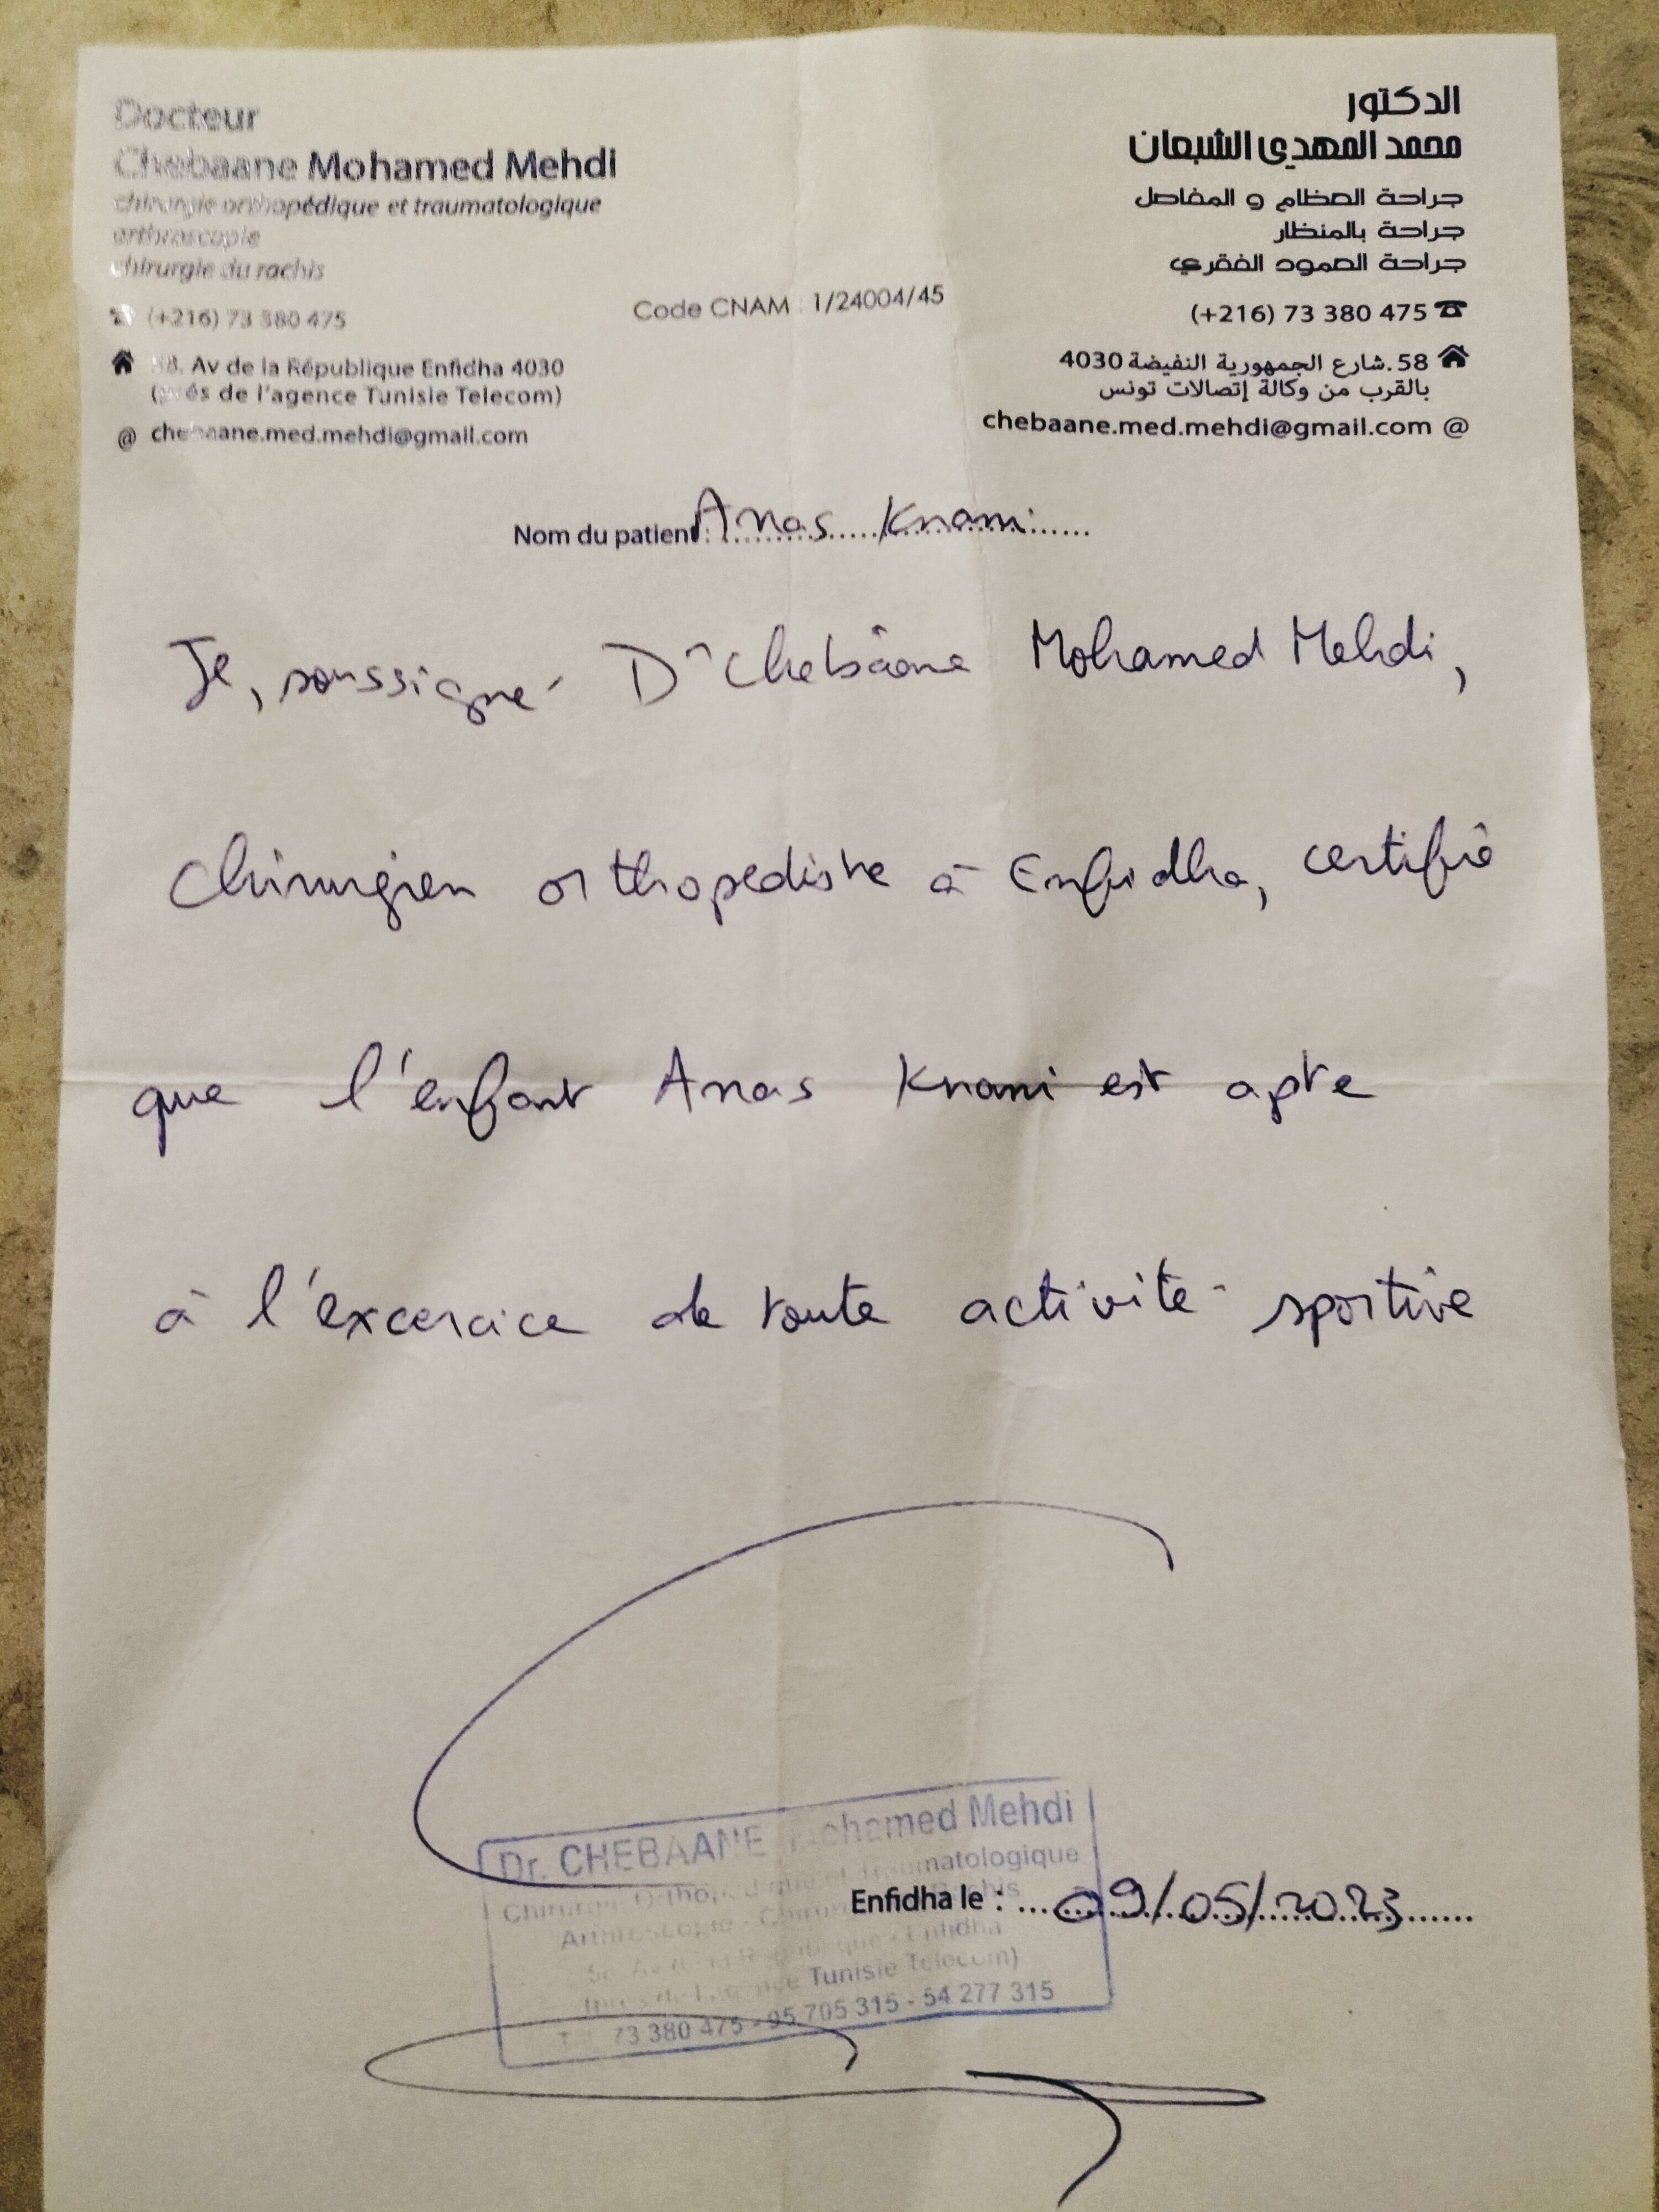 Docteur
Chebaane Mohamed Mehdi
chirurgie orthopédique et traumatologique
arthroscopie
chirurgie du rachis
(+216) 73 380 475
58. Av de la République Enfidha 4030
(prés de l'agence Tunisie Telecom)
@ chebaane.med.mehdi@gmail.com
Code CNAM : 1/24004/45
الدكتور
محمد المهدي الشبعان
جراحة العظام و المفاصل
جراحة بالمنظار
جراحة العمود الفقري
(+216) 73 380 475
58.شارع الجمهورية النفيضة 4030
بالقرب من وكالة إتصالات تونس
chebaane.med.mehdi@gmail.com @
Nom du patient : Anas Knani
Je, soussigné Dr Chebâane Mohamed Mehdi,
Chirurgien orthopediste à Enfidha, certifie
que l'enfant Anas Knani est apte
à l'excercice de toute activité sportive
Dr. CHEBAANE Mohamed Mehdi
Chirurgie Orthopédique et Traumatologique
Arthroscopie - Chirurgie Rachis
58, Av de la République - Enfidha
(près de l'agence Tunisie Telecom)
73 380 475 - 95 705 315 - 54 277 315
Enfidha le : 09/05/2023